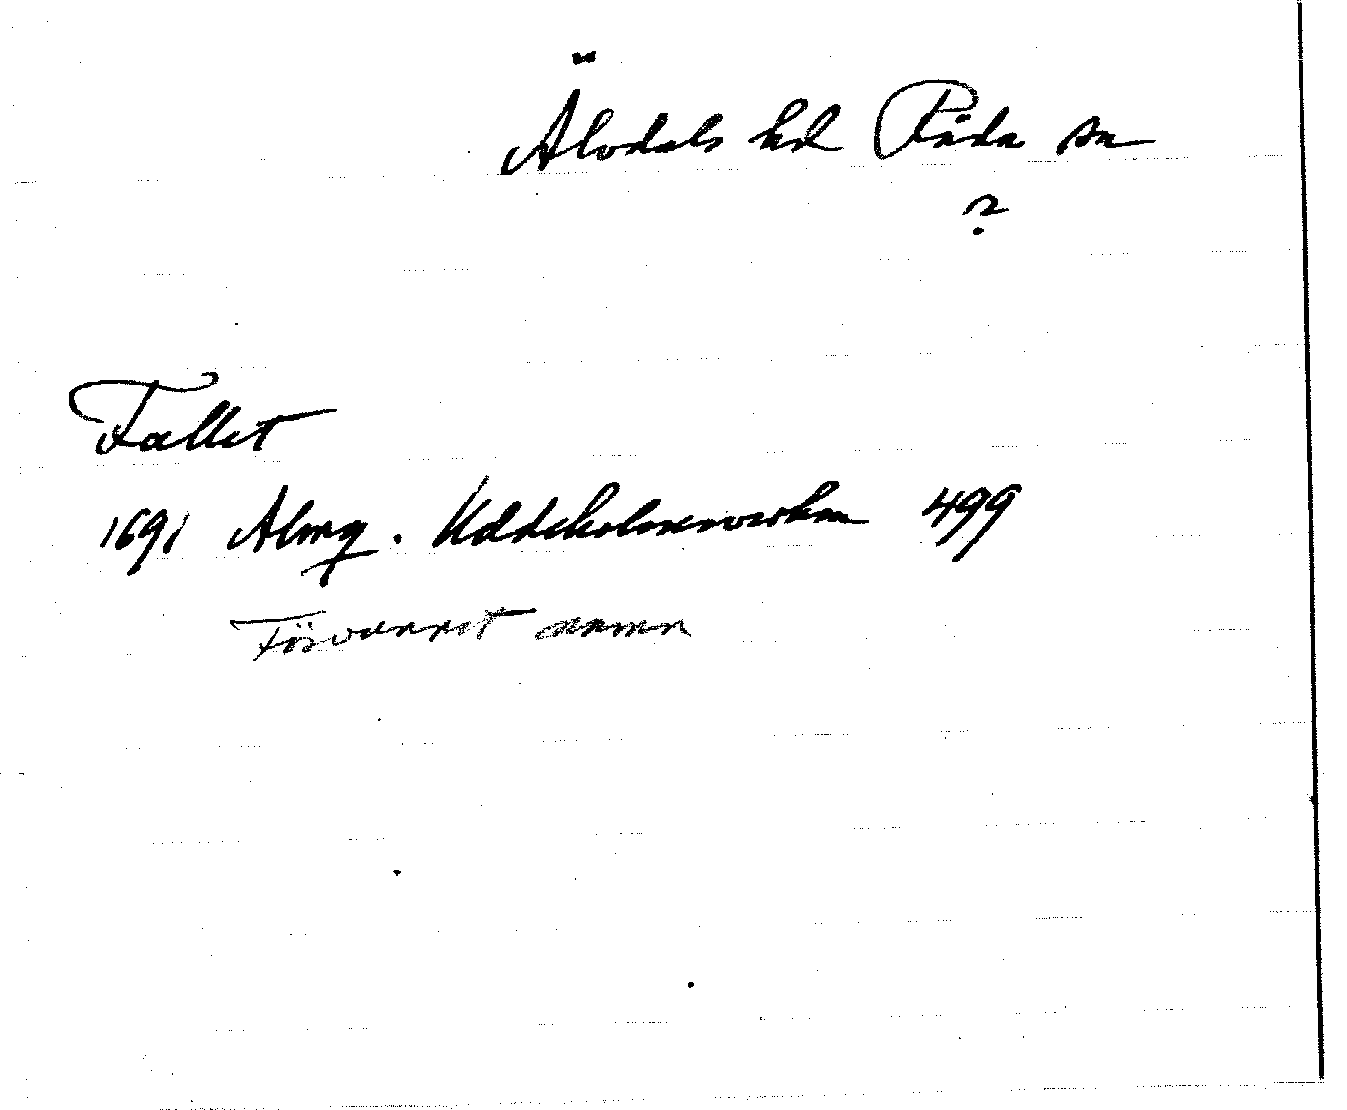 Älvdals hd Råda sn
?
Fallet
1691 Almq. Uddeholmsverken 499
Försvunnet namn